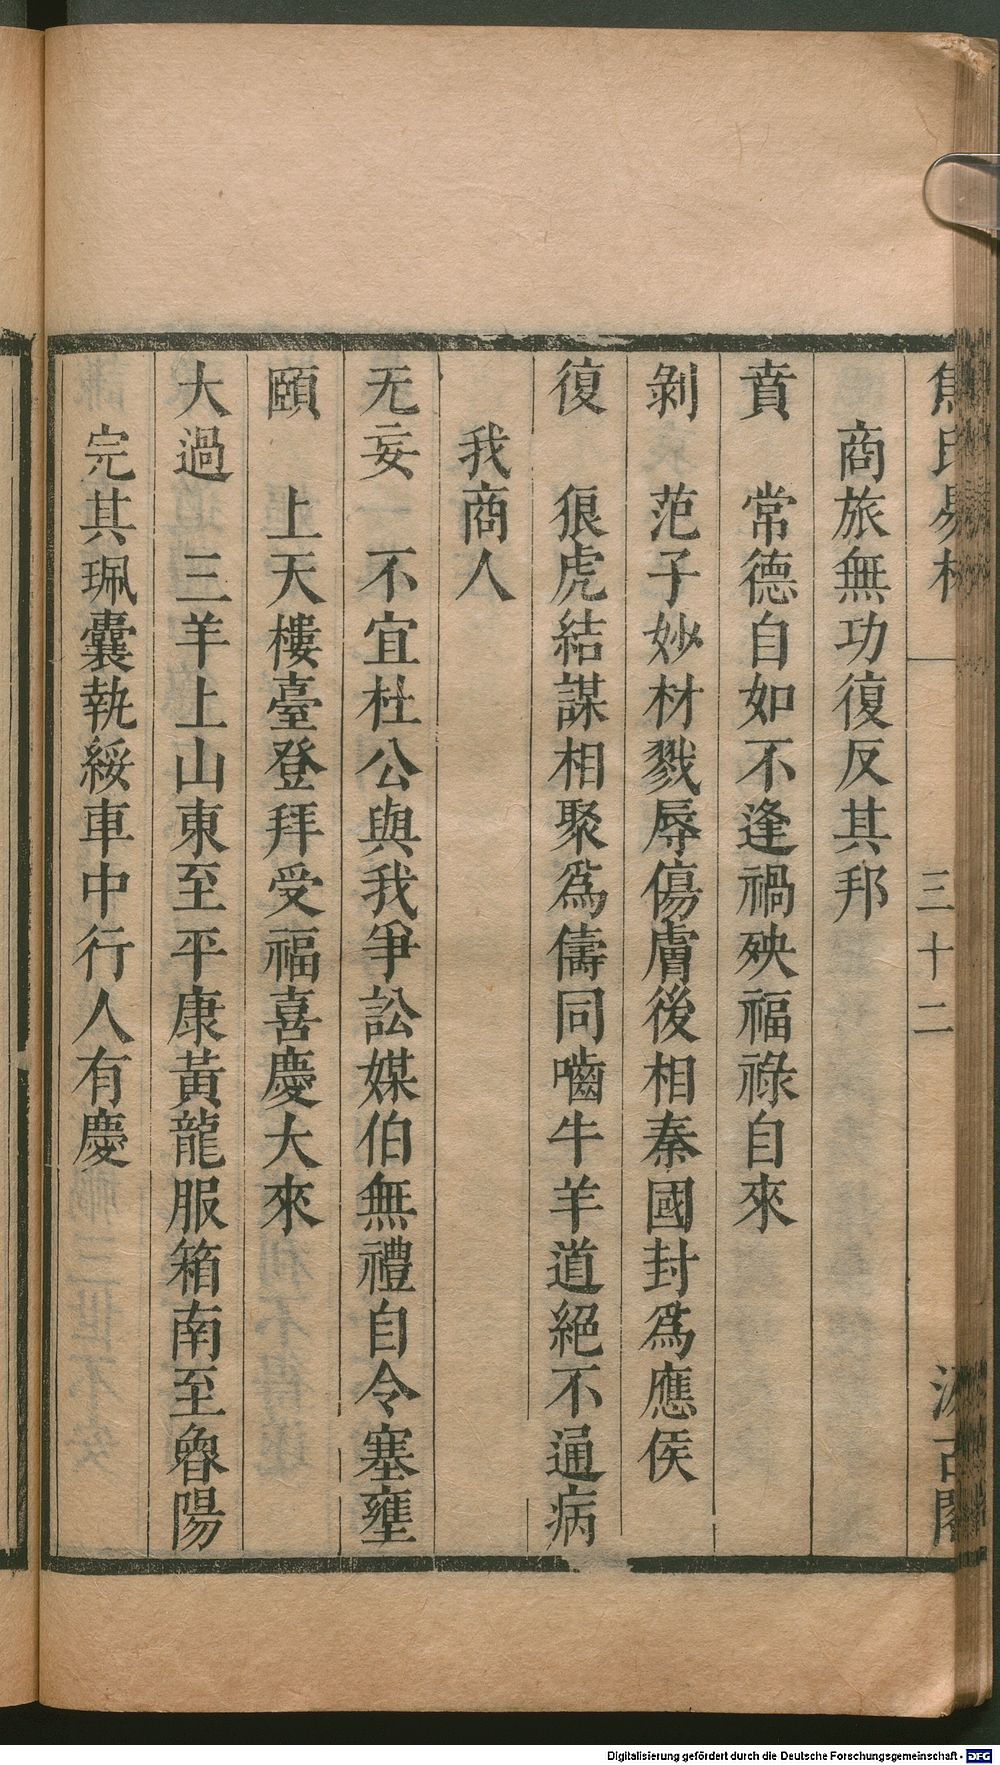 焦氏易林 三十二 汲古閣
商旅無功復反其邦
賁 常德自如不逢禍殃福祿自來
剝 范子妙材戮辱傷膚後相秦國封爲應侯
復 狼虎結謀相聚爲儔同嚙牛羊道絕不通病
我商人
无妄 不宜杜公與我爭訟媒伯無禮自令塞壅
頤 上天樓臺登拜受福喜慶大來
大過 三羊上山東至平康黃龍服箱南至魯陽
完其珮囊執綏車中行人有慶
Digitalisierung gefördert durch die Deutsche Forschungsgemeinschaft - DFG